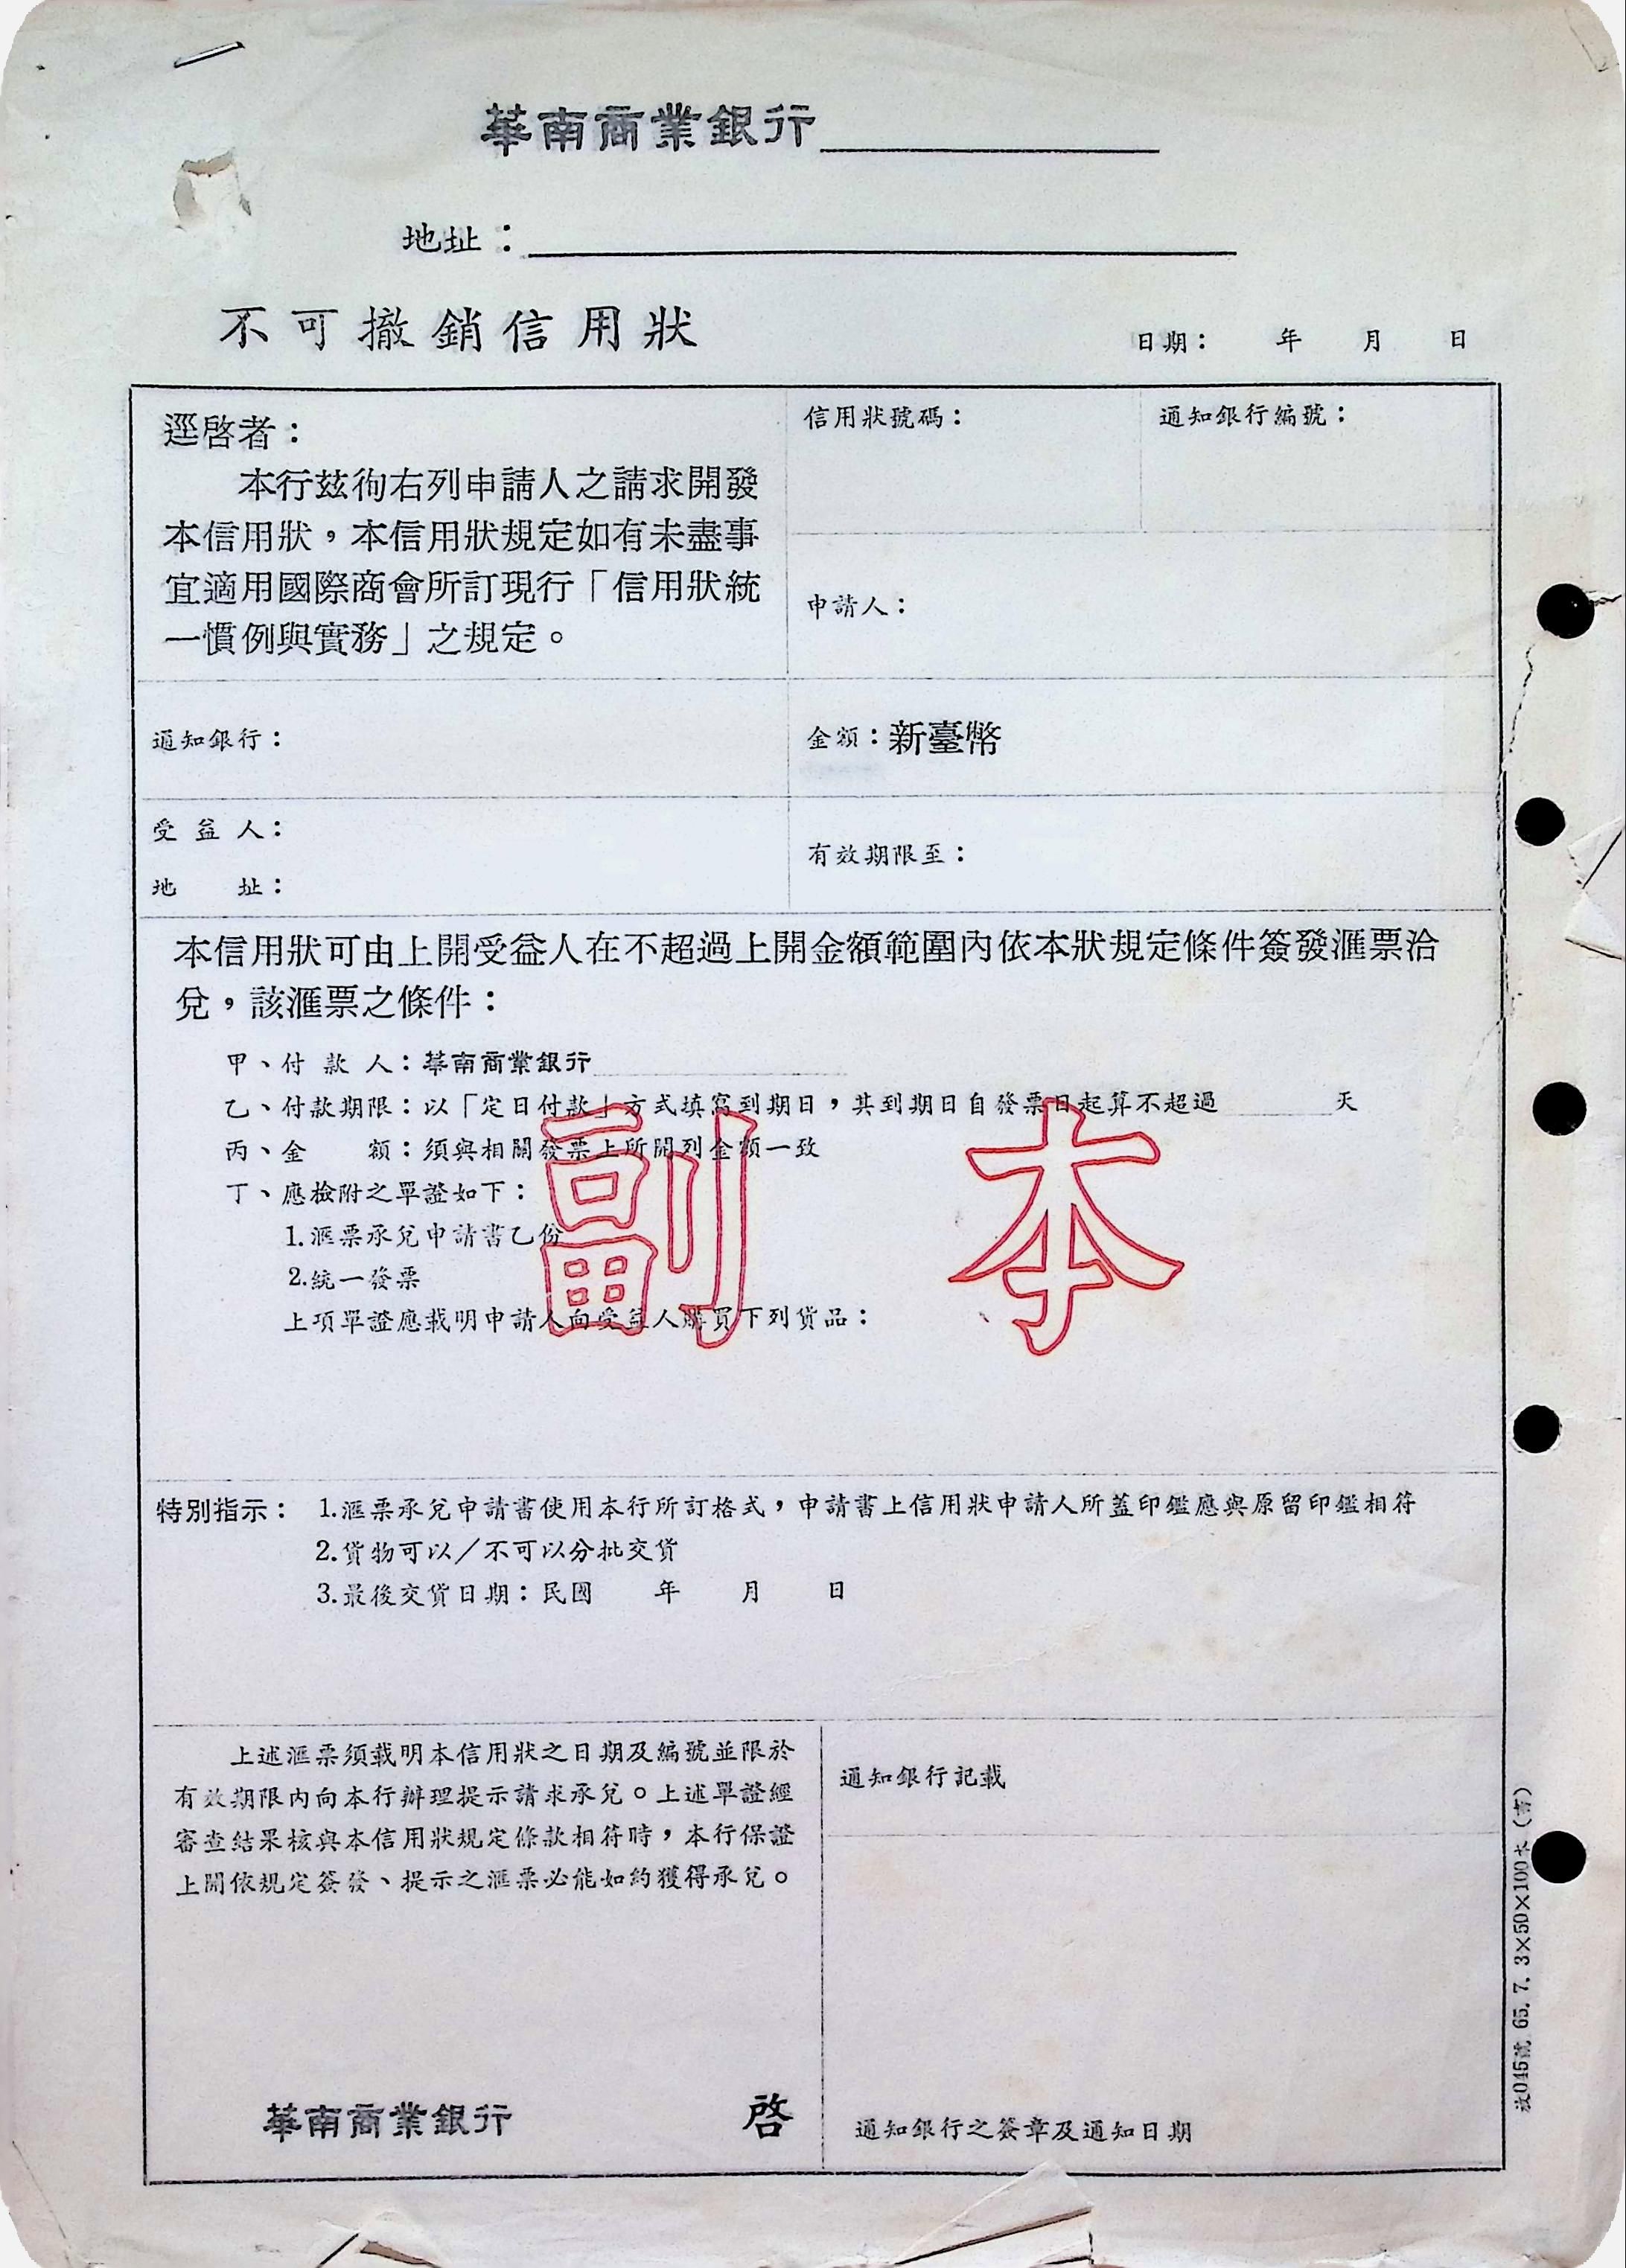 華南商業銀行
地址：
不可撤銷信用狀
日期：　　年　　月　　日
逕啓者：
本行茲徇右列申請人之請求開發
本信用狀，本信用狀規定如有未盡事
宜適用國際商會所訂現行「信用狀統
一慣例與實務」之規定。
信用狀號碼：
通知銀行編號：
申請人：
通知銀行：
金額：新臺幣
受益人：
地　　址：
有效期限至：
本信用狀可由上開受益人在不超過上開金額範圍內依本狀規定條件簽發滙票洽
兌，該滙票之條件：
甲、付款人：華南商業銀行
乙、付款期限：以「定日付款」方式填寫到期日，其到期日自發票日起算不超過　　　天
丙、金　　額：須與相關發票上所開列金額一致
丁、應檢附之單證如下：
1.滙票承兌申請書乙份
2.統一發票
上項單證應載明申請人向受益人購買下列貨品：
副本
特別指示：1.滙票承兌申請書使用本行所訂格式，申請書上信用狀申請人所蓋印鑑應與原留印鑑相符
2.貨物可以／不可以分批交貨
3.最後交貨日期：民國　　年　　月　　日
上述滙票須載明本信用狀之日期及編號並限於
有效期限內向本行辦理提示請求承兌。上述單證經
審查結果核與本信用狀規定條款相符時，本行保證
上開依規定簽發、提示之滙票必能如約獲得承兌。
華南商業銀行　　啓
通知銀行記載
通知銀行之簽章及通知日期
045號 65. 7. 3×50×100本